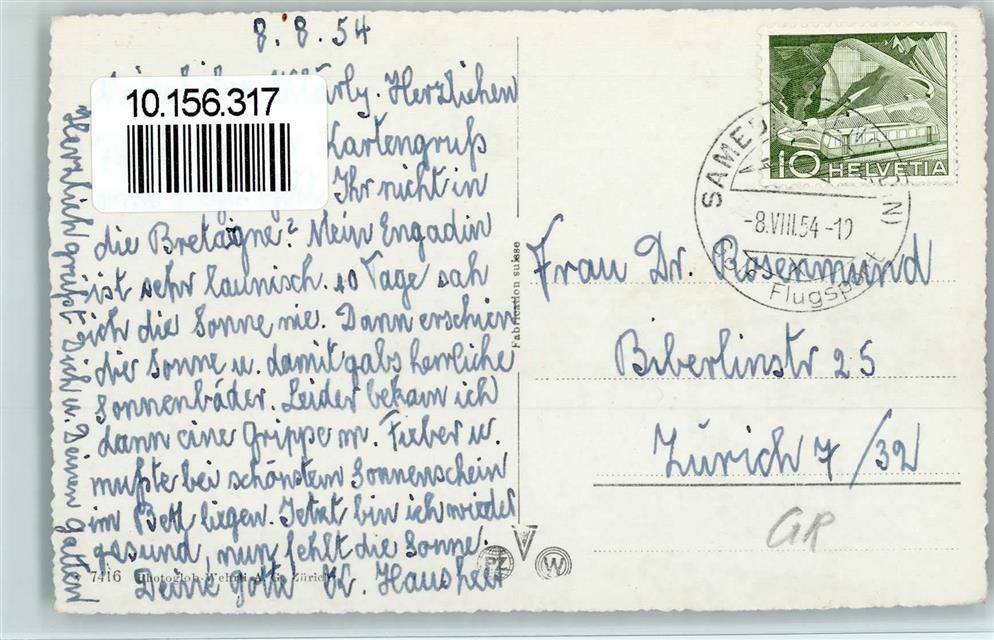 8.8.54
Herzlichen
10.156.317
Kartengruß
Ihr nicht in
die Bretagne? Mein Engadin
ist sehr launisch. 10 Tage sah
ich die Sonne nie. Dann erschien
die Sonne u. damit gabs herrliche
Sonnenbäder. Leider bekam ich
dann eine Grippe m. Fieber u.
mußte bei schönstem Sonnenschein
im Bett liegen. Jetzt bin ich wieder
gesund, nun fehlt die Sonne!
Deine Gotte K. Hausheer
Herzlich grüßt Dich u. Deinen Gatten
7416 Photoglob-Wehrli A.G. Zürich
Fabrication suisse
PZ W
10 HELVETIA
SAMEDAN
-8.VIII.54-19
Flugsport
Frau Dr. Rosenmund
Biberlinstr 25
Zürich 7/32
GR